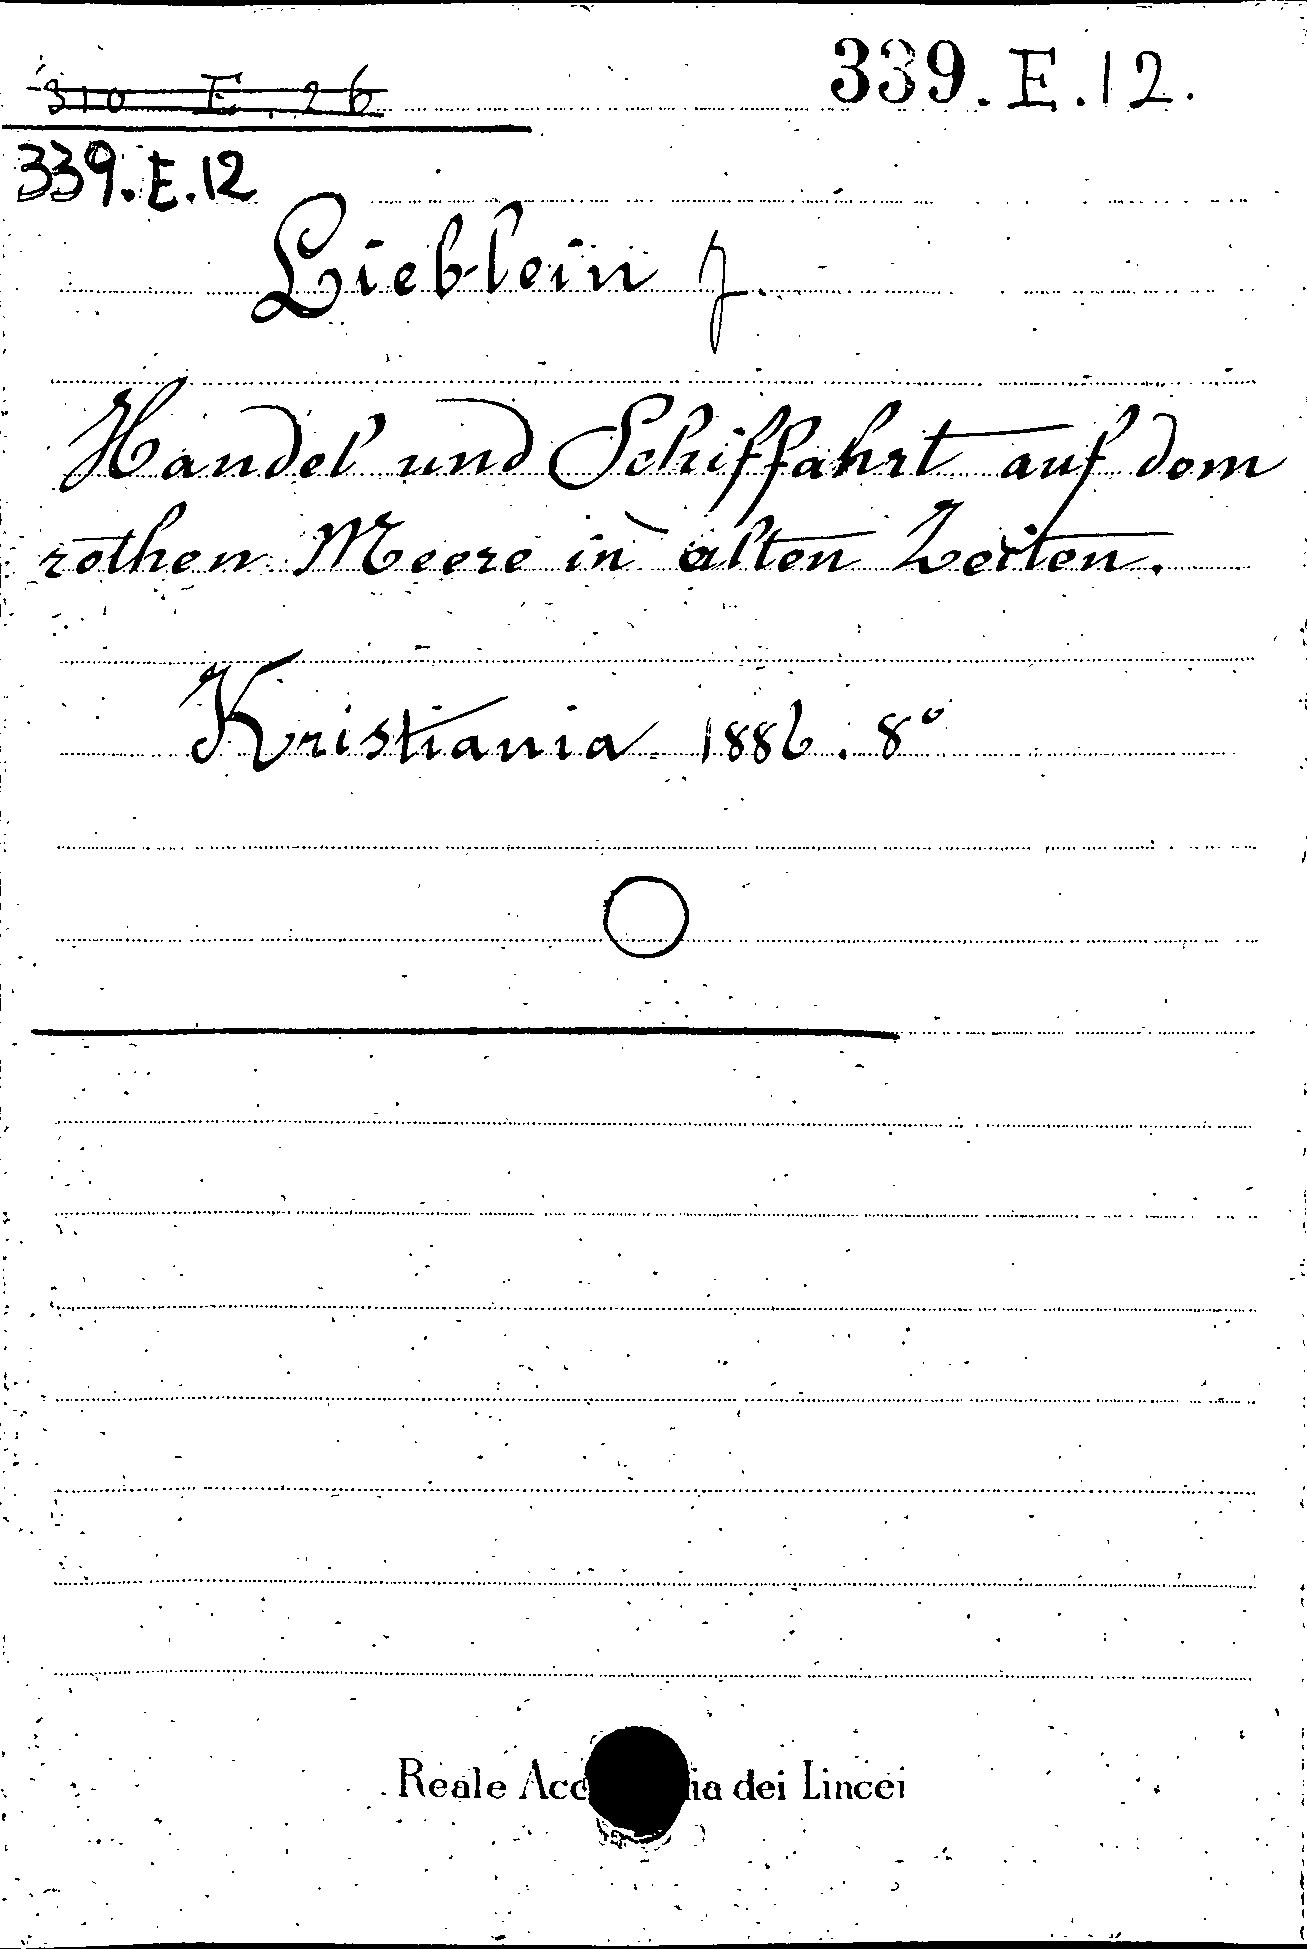 310 E. 26
339. E. 12.
339. E. 12
Lieblein J.
Handel und Schiffahrt auf dem
rothen Meere in alten Zeiten.
Kristiania 1886. 8°
Reale dei Lincei